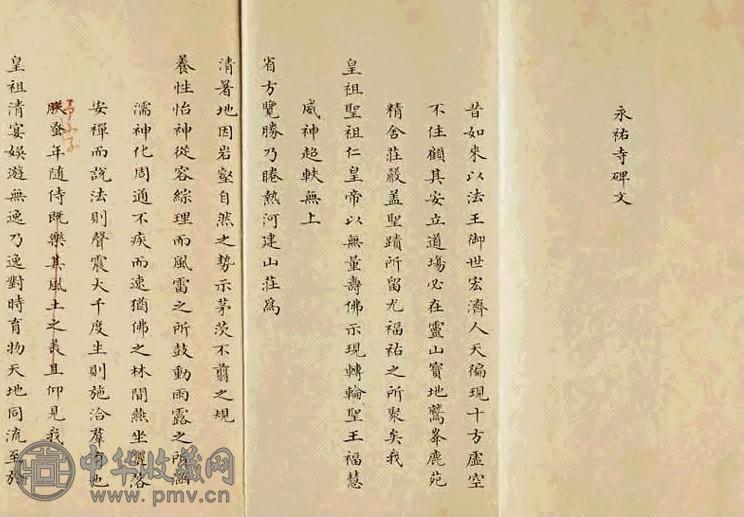 永祐寺碑文
昔如來以法王御世宏濟人天徧現十方虛空
不住顧其安立道場必在靈山寶地鷲峯鹿苑
精舍莊嚴盖聖蹟所留尤福祐之所聚矣我
皇祖聖祖仁皇帝以無量壽佛示現轉輪聖王福慧
威神超軼無上
省方覽勝乃睠熱河建山莊爲
清暑地因岩壑自然之勢示茅茨不翦之規
養性怡神從容綜理而風雷之所鼓動雨露之所涵
濡神化周通不疾而速猶佛之林間燕坐落
安禪而說法則聲震大千度生則施洽羣有也
予小子
朕蚤年随侍既樂其風土之美且仰見我
皇祖清宴娛遊無逸乃逸對時育物天地同流至於
中华收藏网
www.pmv.cn